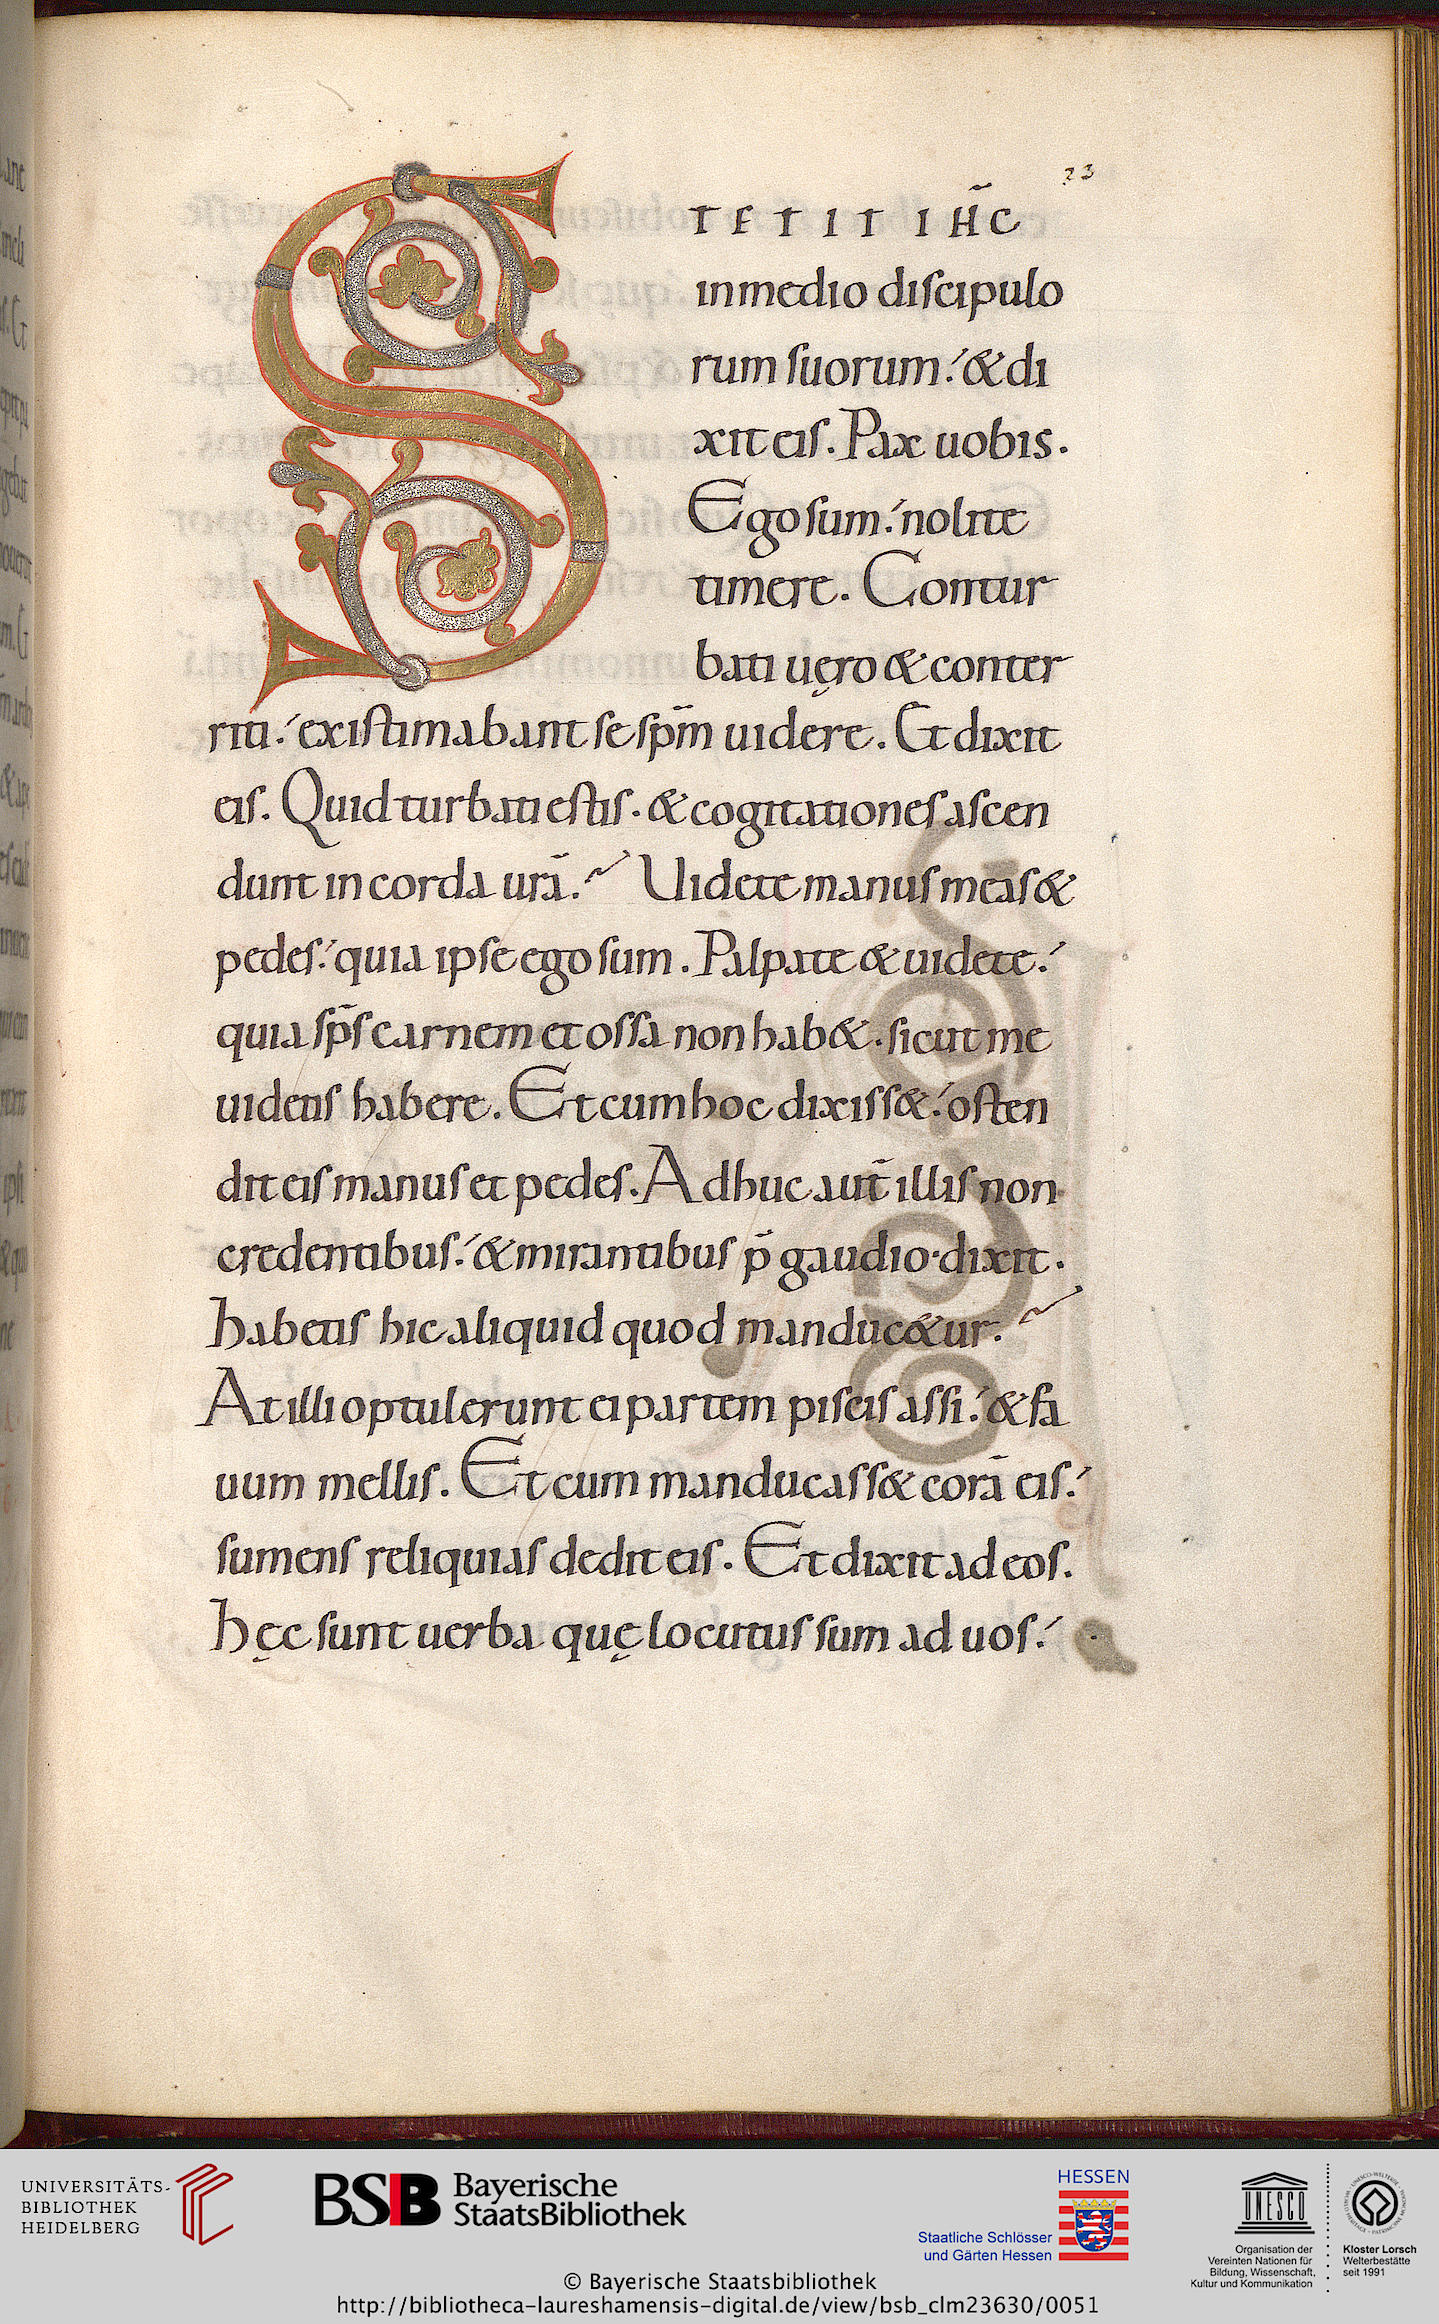 23
STETIT IH̄C
inmedio discipulo
rum suorum. & di
xit eis. Pax uobis.
Ego sum. nolite
timere. Contur
bati uęro & conter
riti. existimabant se sp̄m uidere. Et dixit
eis. Quid turbati estis. & cogitationes ascen
dunt in corda urā. Uidete manus meas &
pedes. quia ipse ego sum. Palpate & uidete.
quia sp̄s carnem et ossa non hab&. sicut me
uidetis habere. Et cum hoc dixiss&. osten
dit eis manus et pedes. Adhuc aut̄ illis non
credentibus. & mirantibus p̄ gaudio. dixit.
habetis hic aliquid quod manduc&ur.
At illi optulerunt ei partem piscis assi. & fa
uum mellis. Et cum manducass& corā eis.
sumens reliquias dedit eis. Et dixit ad eos.
hęc sunt uerba quę locutus sum ad uos.
UNIVERSITÄTS-
BIBLIOTHEK
HEIDELBERG
BSB Bayerische
StaatsBibliothek
HESSEN
Staatliche Schlösser
und Gärten Hessen
UNESCO
Organisation der
Vereinten Nationen für
Bildung, Wissenschaft,
Kultur und Kommunikation
Kloster Lorsch
Welterbestätte
seit 1991
© Bayerische Staatsbibliothek
http://bibliotheca-laureshamensis-digital.de/view/bsb_clm23630/0051